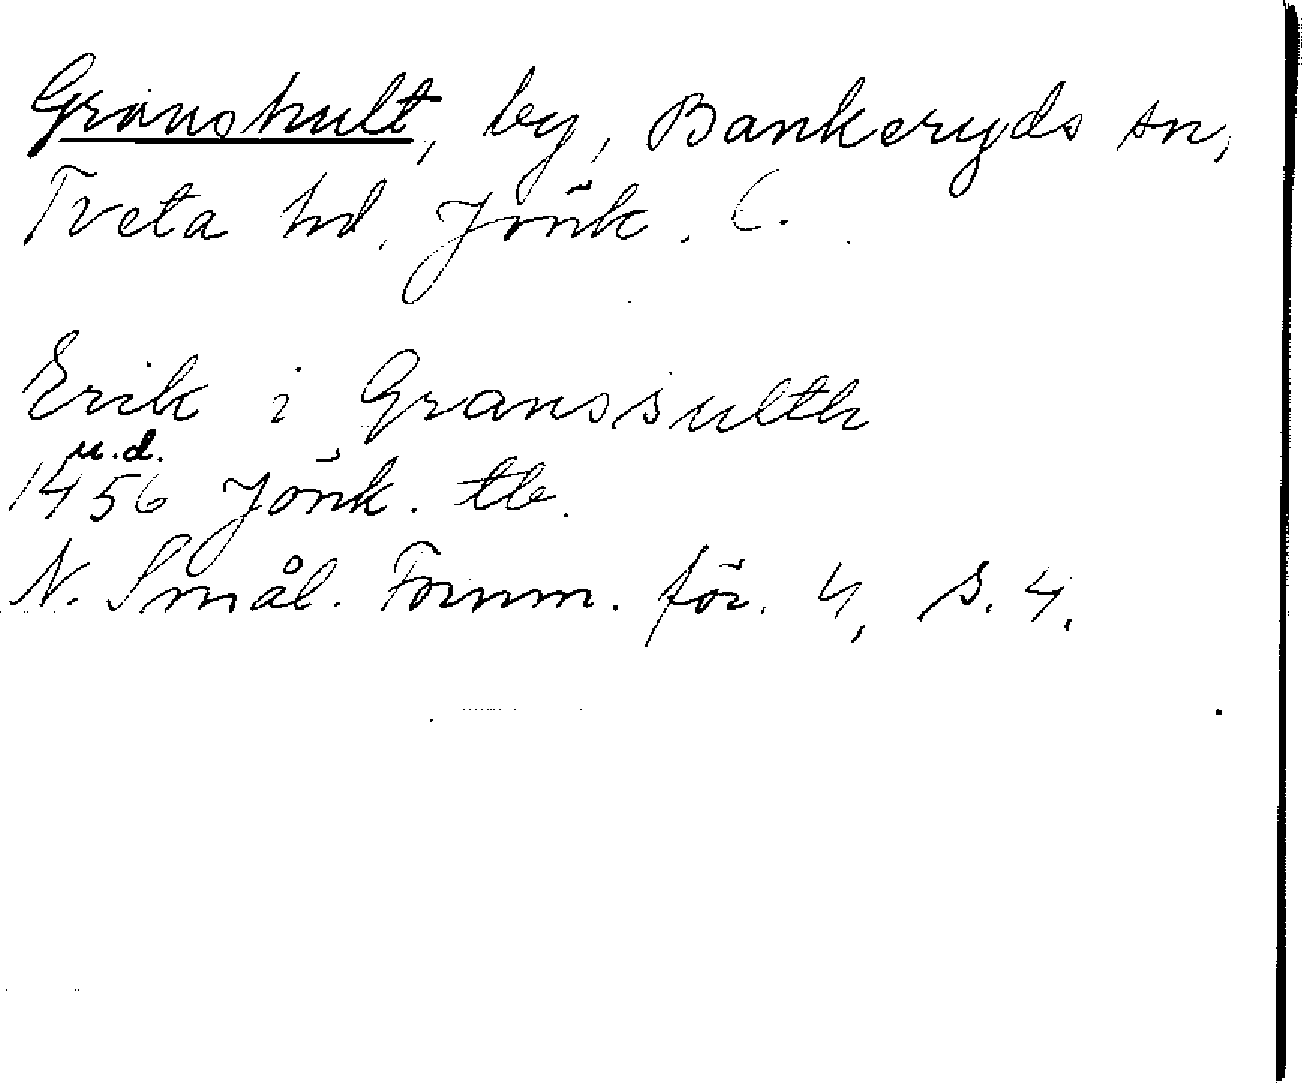 Granshult, by, Bankeryds sn,
Tveta hd. Jönk. l.
Erik i Granssulth
u.d.
1456 Jönk. tb.
N. Smål. Fornm. för. 4, s. 4.